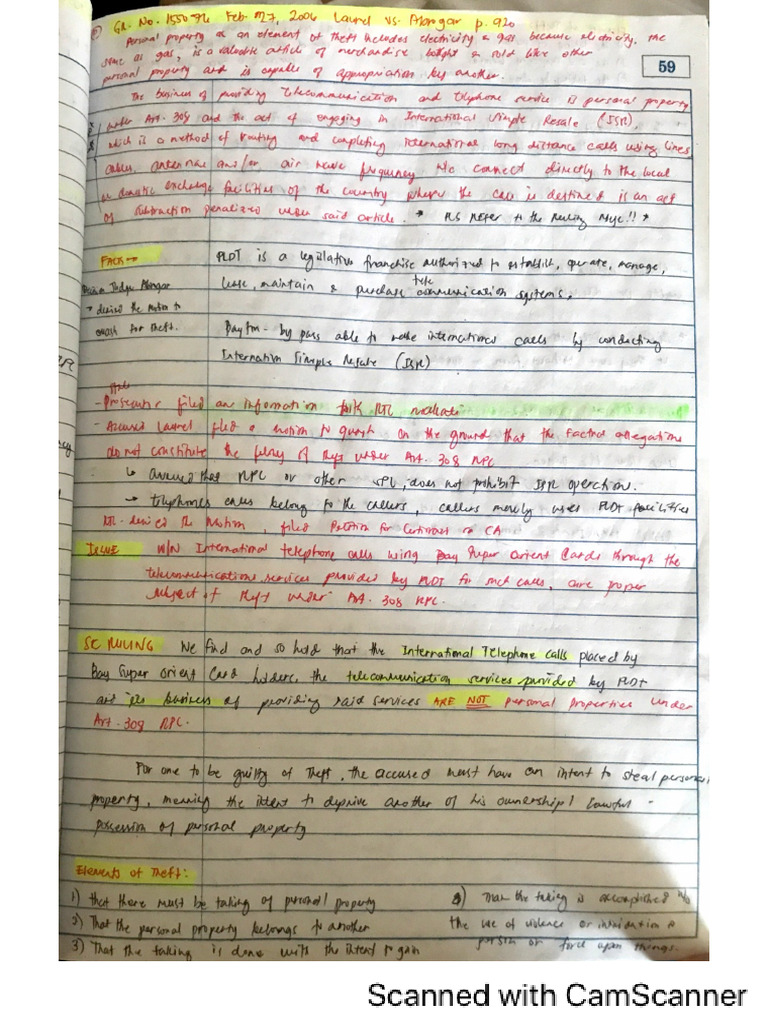 GR. No. 155076 Feb. 27, 2006 Laurel vs. Abrogar p. 920
Personal property as an element of theft includes electricity & gas because electricity, the
same as gas, is a valuable article of merchandise bought & sold like other
personal property and is capable of appropriation by another.
59
The business of providing telecommunication and telephone service is personal property
under Art. 308 and the act of engaging in International Simple Resale (ISR),
which is a method of routing and completing international long distance calls using lines
cables, antennae and/or air wave frequency, w/c connect directly to the local
or domestic exchange facilities of the country where the call is destined is an act
of subtraction penalized under said article. * PLS REFER to the Ruling
Facts→
PLDT is a legislative franchise authorized to establish, operate, manage,
lease, maintain & purchase telecommunication systems.
Judge Abrogar
→ denied the Motion to
quash for theft.
Baynet - by pass able to make international calls by conducting
International Simple Resale (ISR)
State
- Prosecutor filed an information RTC Makati
- Accused Laurel filed a motion to quash on the ground that the factual allegations
do not constitute the felony of theft under Art. 308 RPC
↳ averred that RPC or other SPL, does not prohibit ISR operation.
→ telephones calls belong to the callers, callers merely uses PLDT facilities
RTC - denied the Motion, filed Petition for Certiorari on CA
ISSUE W/N International telephone calls using Bay Super Orient Cards through the
telecommunications services provided by PLDT for such calls, are proper
subject of theft under Art. 308 RPC.
SC RULING We find and so hold that the International Telephone calls placed by
Bay Super Orient Card holders, the telecommunication services provided by PLDT
and its business of providing said services ARE NOT personal properties under
Art. 308 RPC.
For one to be guilty of Theft, the accused must have an intent to steal personal
property, meaning the intent to deprive another of his ownership/ lawful
possession of personal property
Elements of Theft:
1) that there must be taking of personal property
2) That the personal property belongs to another
3) That the taking is done with the intent to gain
4) That the taking is accomplished w/o
the use of violence or intimidation
person or force upon things.
Scanned with CamScanner